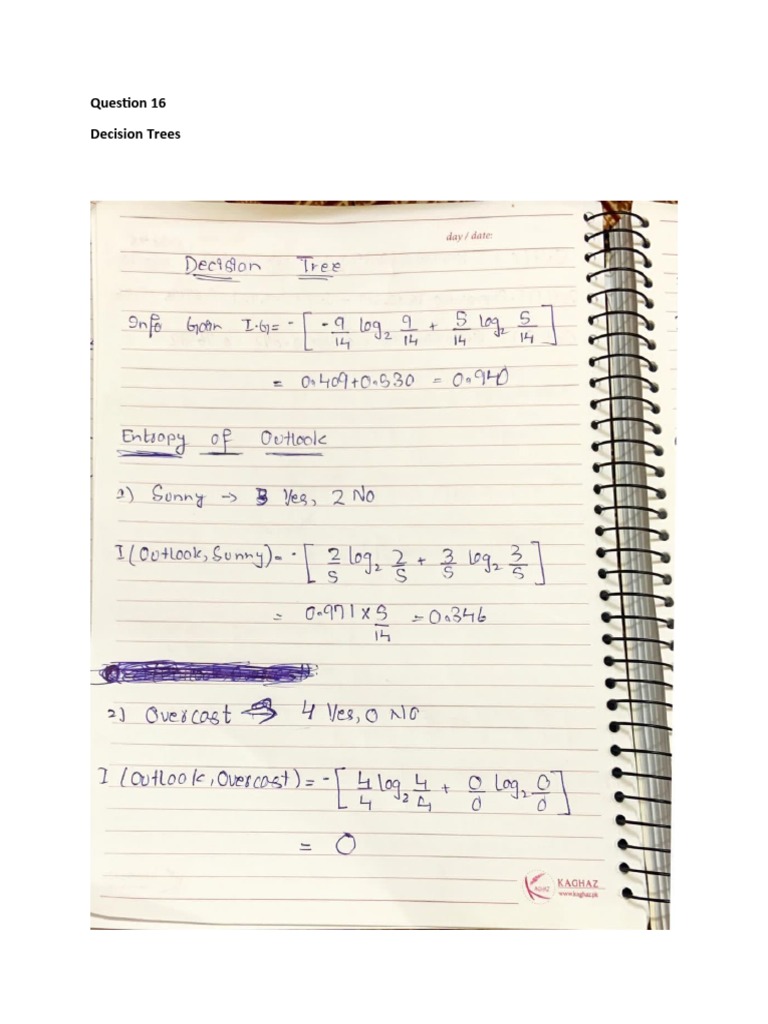 Question 16
Decision Trees
day / date:
Decision Tree
Info Gain I.G = - [ -9/14 log₂ 9/14 + 5/14 log₂ 5/14 ]
= 0.409+0.530 = 0.940
Entropy of Outlook
1) Sunny → 3 Yes, 2 No
I (Outlook, Sunny) = - [ 2/5 log₂ 2/5 + 3/5 log₂ 3/5 ]
= 0.971 x 5/14 = 0.346
2) Overcast → 4 Yes, 0 No
I (Outlook, Overcast) = - [ 4/4 log₂ 4/4 + 0/0 log₂ 0/0 ]
= 0
KAGHAZ
www.kaghaz.pk